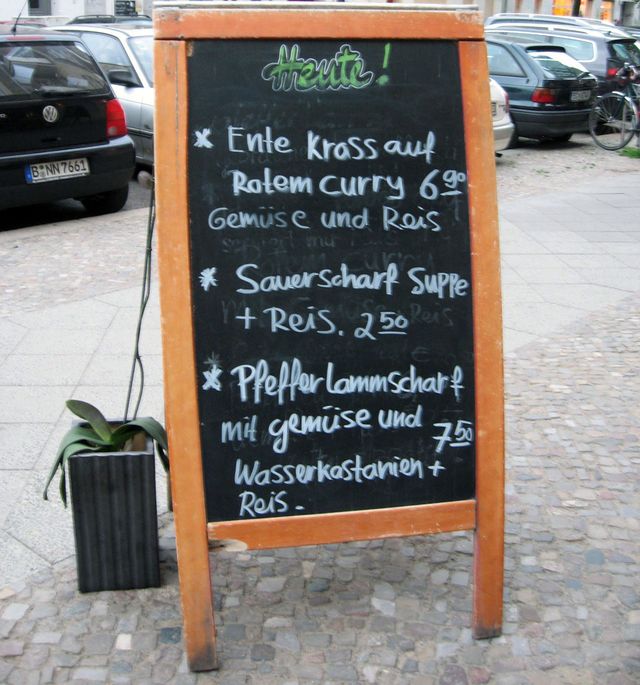 Heute!
* Ente Kross auf
Rotem Curry 6 90
Gemüse und Reis
* Sauerscharf Suppe
+ Reis. 2 50
* Pfeffer Lammscharf
mit gemüse und 7 50
Wasserkastanien +
Reis.
B NN 7661